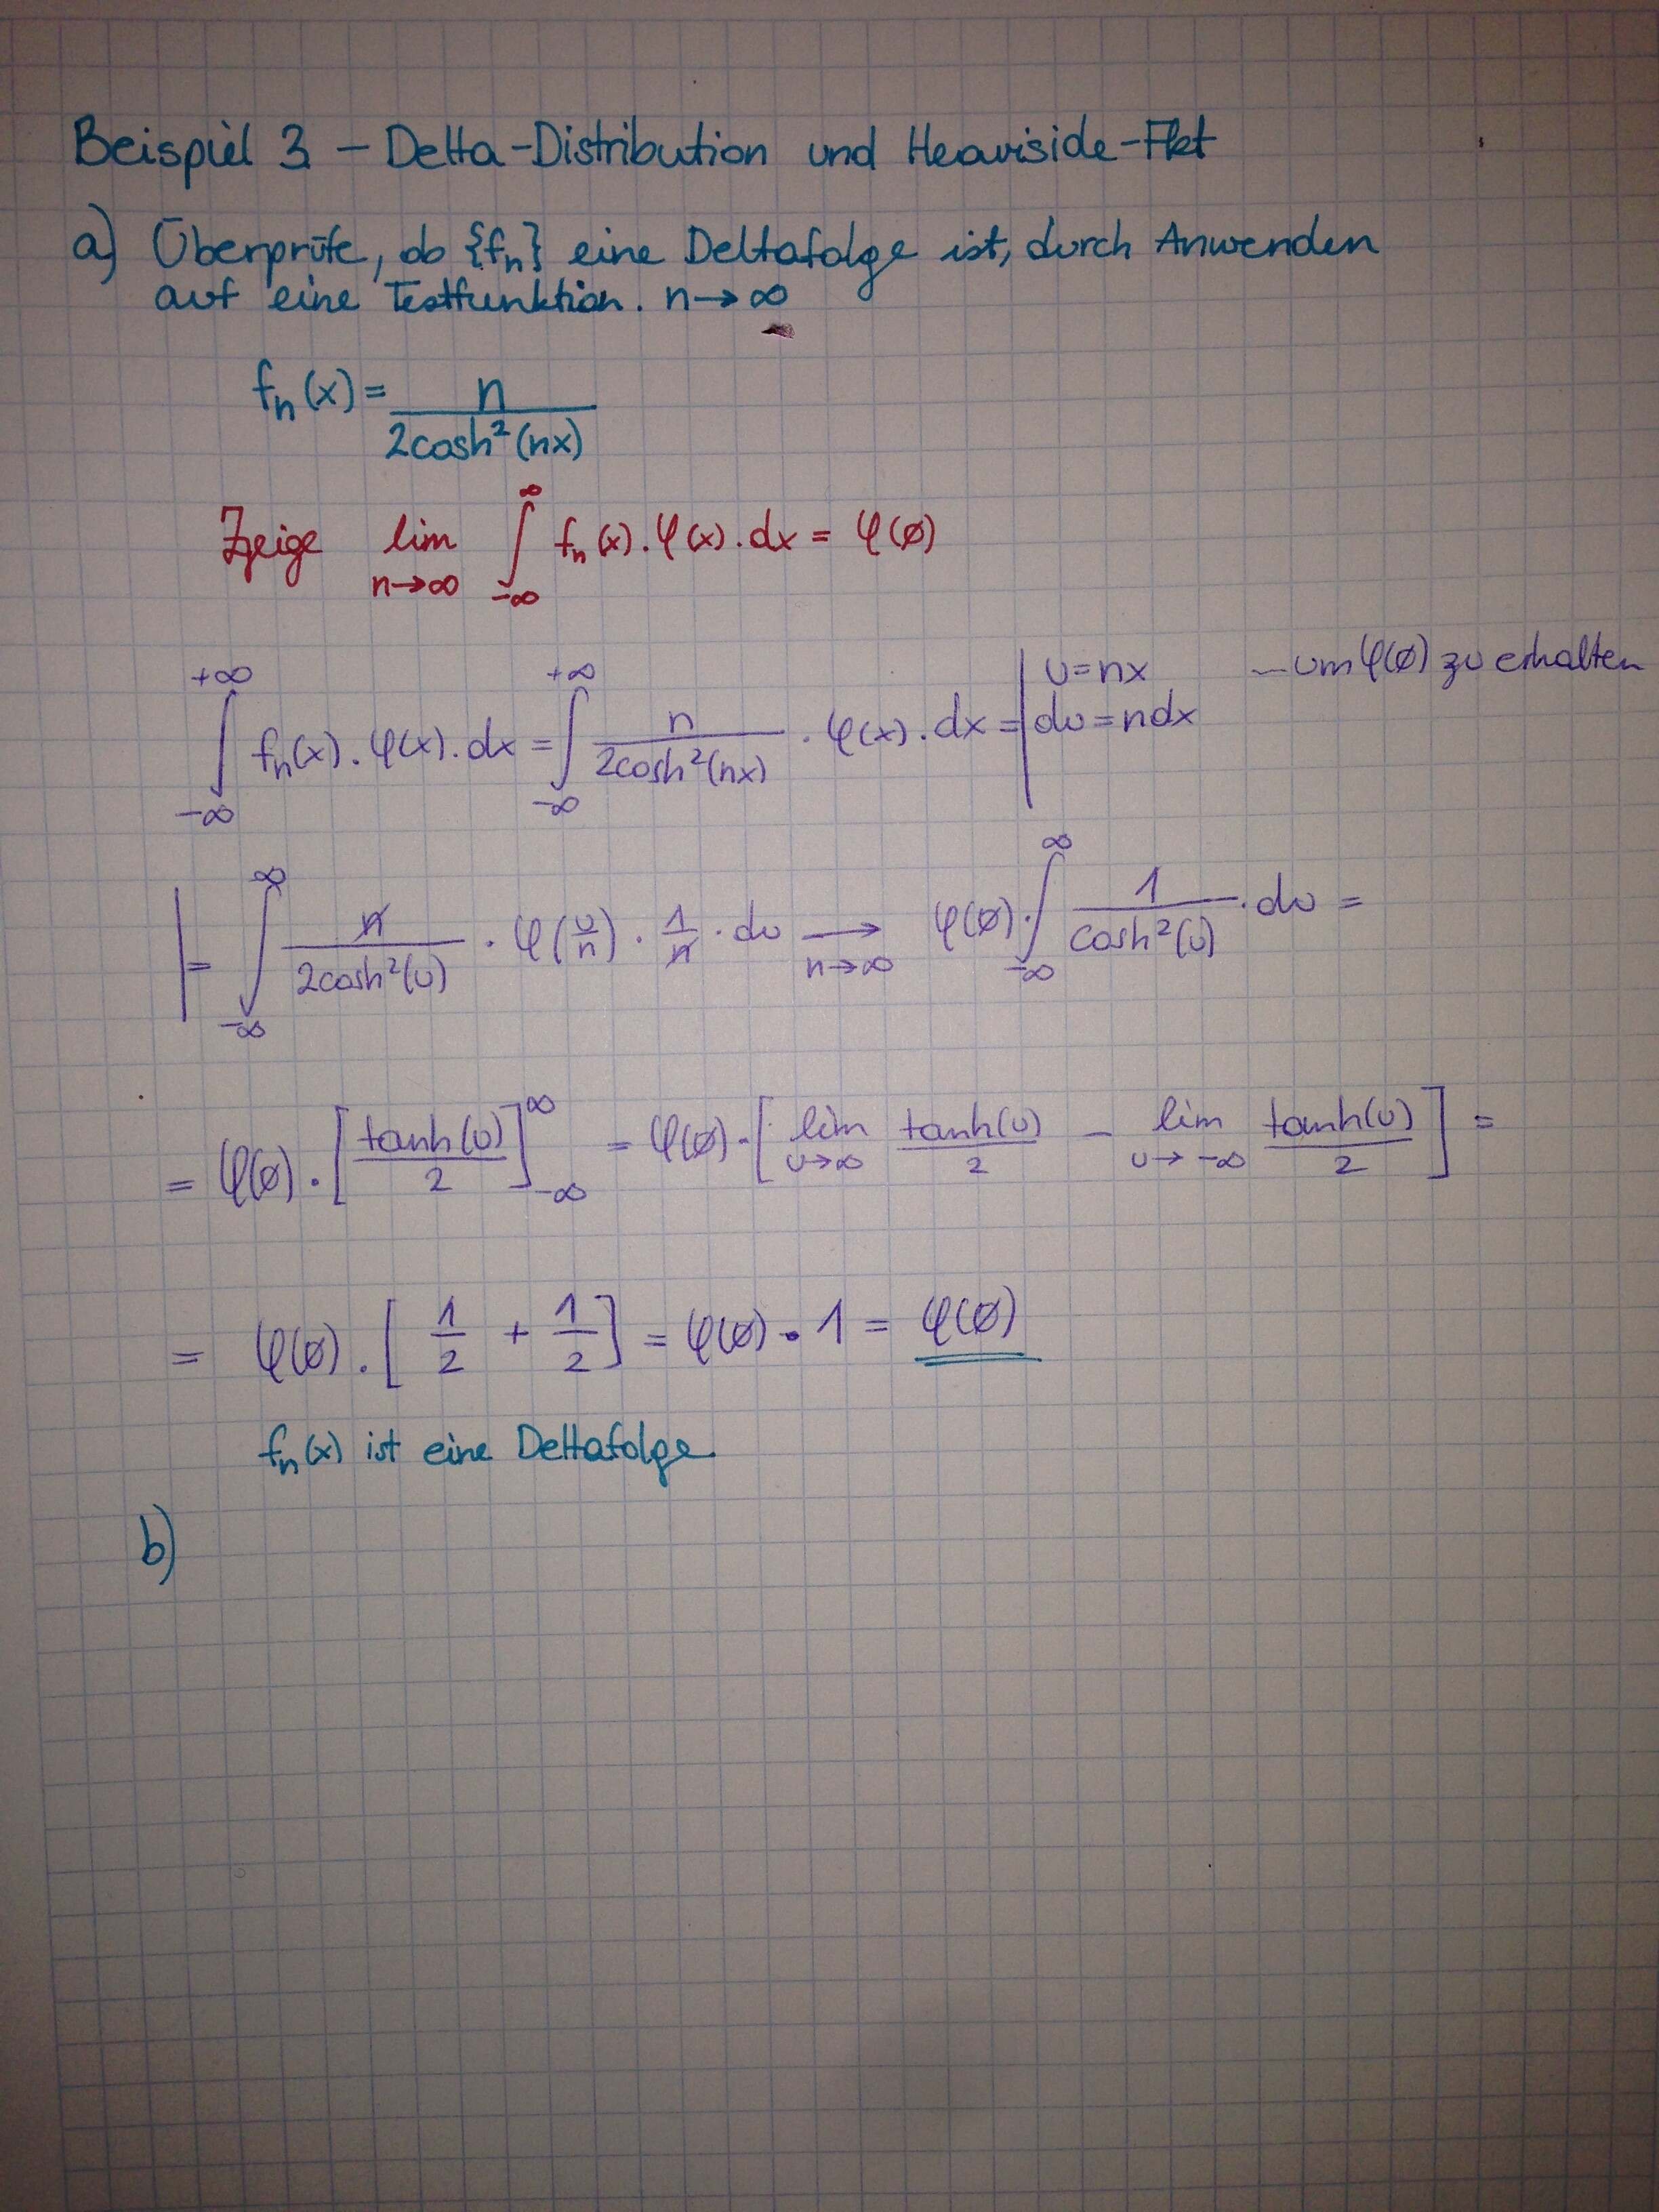 Beispiel 3 – Delta-Distribution und Heaviside-Fkt
a) Überprüfe, ob {fₙ} eine Deltafolge ist, durch Anwenden
auf eine Testfunktion. n→∞
fₙ(x) = n / 2cosh²(nx)
Zeige lim n→∞ ∫_{-∞}^{∞} fₙ(x) · φ(x) · dx = φ(∅)
∫_{-∞}^{+∞} fₙ(x) · φ(x) · dx = ∫_{-∞}^{+∞} n / 2cosh²(nx) · φ(x) · dx = | u=nx du=ndx – um φ(∅) zu erhalten
|= ∫_{-∞}^{∞} n / 2cosh²(u) · φ(u/n) · 1/n · du → n→∞ φ(∅) · ∫_{-∞}^{∞} 1 / cosh²(u) · du =
= φ(∅) · [tanh(u) / 2]_{-∞}^{∞} = φ(∅) · [lim u→∞ tanh(u) / 2 – lim u→-∞ tanh(u) / 2] =
= φ(∅) · [1/2 + 1/2] = φ(∅) · 1 = φ(∅)
fₙ(x) ist eine Deltafolge
b)